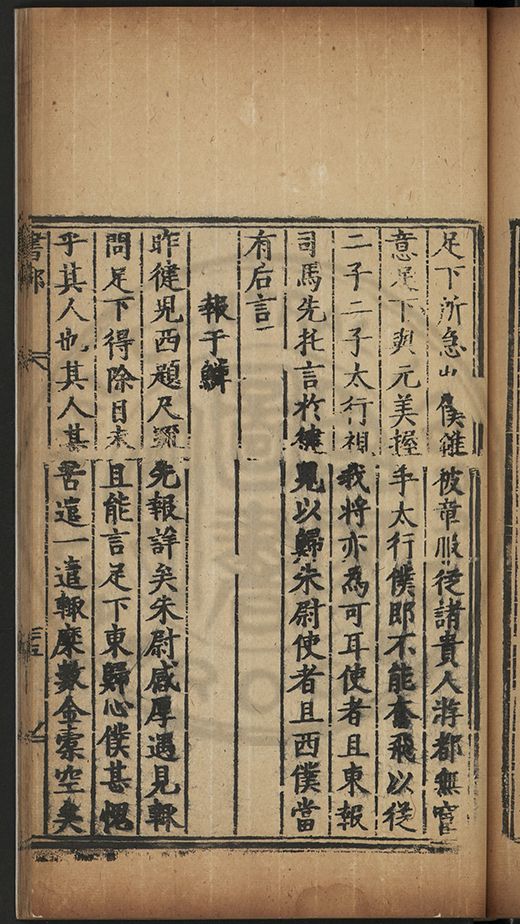 足下所急山僕雖被章服從諸貴人游都無寧
意足下與元美握手太行僕即不能奮飛以從
二子二子太行相我將亦為可耳使者且東報
司馬先托言於徤児以歸朱尉使者且西僕當
有后言
報于鱗
昨徤児西題尺先報詳矣朱尉感厚遇見輙
問足下得除目未且能言足下東歸心僕甚愧
乎其人也其人甚客遠一遣輙糜數金橐空矣